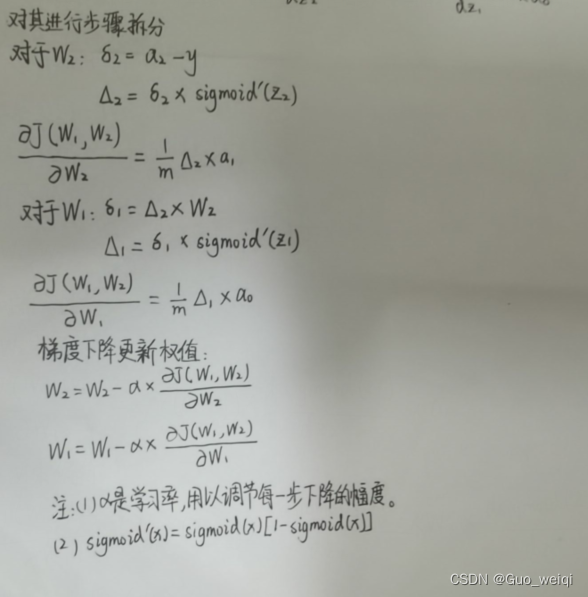 对其进行步骤拆分
对于W₂: δ₂ = a₂ - y
Δ₂ = δ₂ × sigmoid'(z₂)
∂J(W₁,W₂)/∂W₂ = 1/m Δ₂ × a₁
对于W₁: δ₁ = Δ₂ × W₂
Δ₁ = δ₁ × sigmoid'(z₁)
∂J(W₁,W₂)/∂W₁ = 1/m Δ₁ × a₀
梯度下降更新权值:
W₂ = W₂ - α × ∂J(W₁,W₂)/∂W₂
W₁ = W₁ - α × ∂J(W₁,W₂)/∂W₁
注:(1) α是学习率,用以调节每一步下降的幅度。
(2) sigmoid'(x) = sigmoid(x)[1-sigmoid(x)]
CSDN @Guo_weiqi